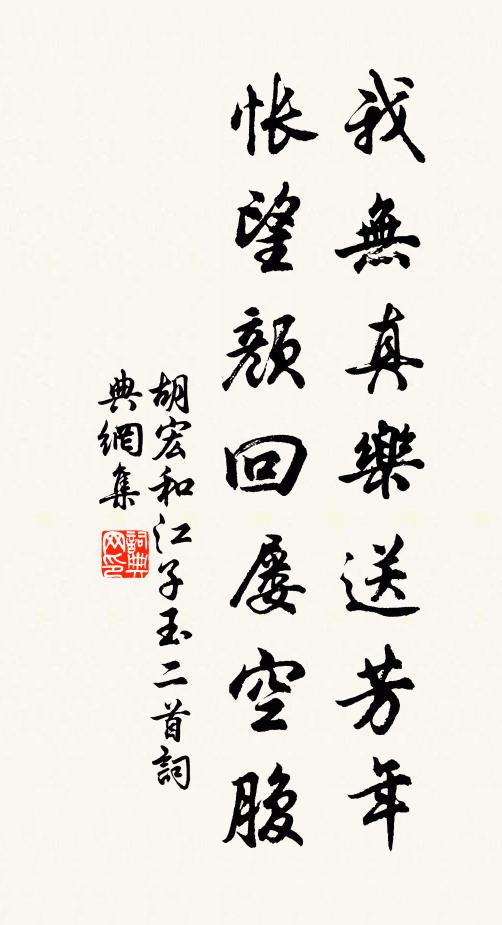 我無真樂送芳年
悵望顔回屡空腹
胡宏和江子玉二首詞
典網集
詞典网印